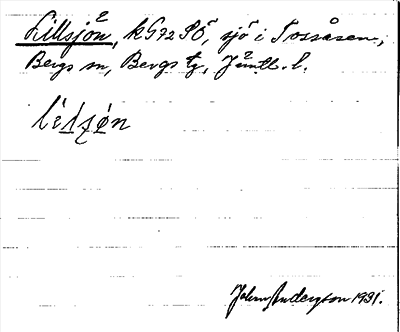 Lillsjön, kG72SÖ, sjö i Tossåsen,
Bergs sn, Bergs tg, Jämtl. l.
John Anderzon 1931.